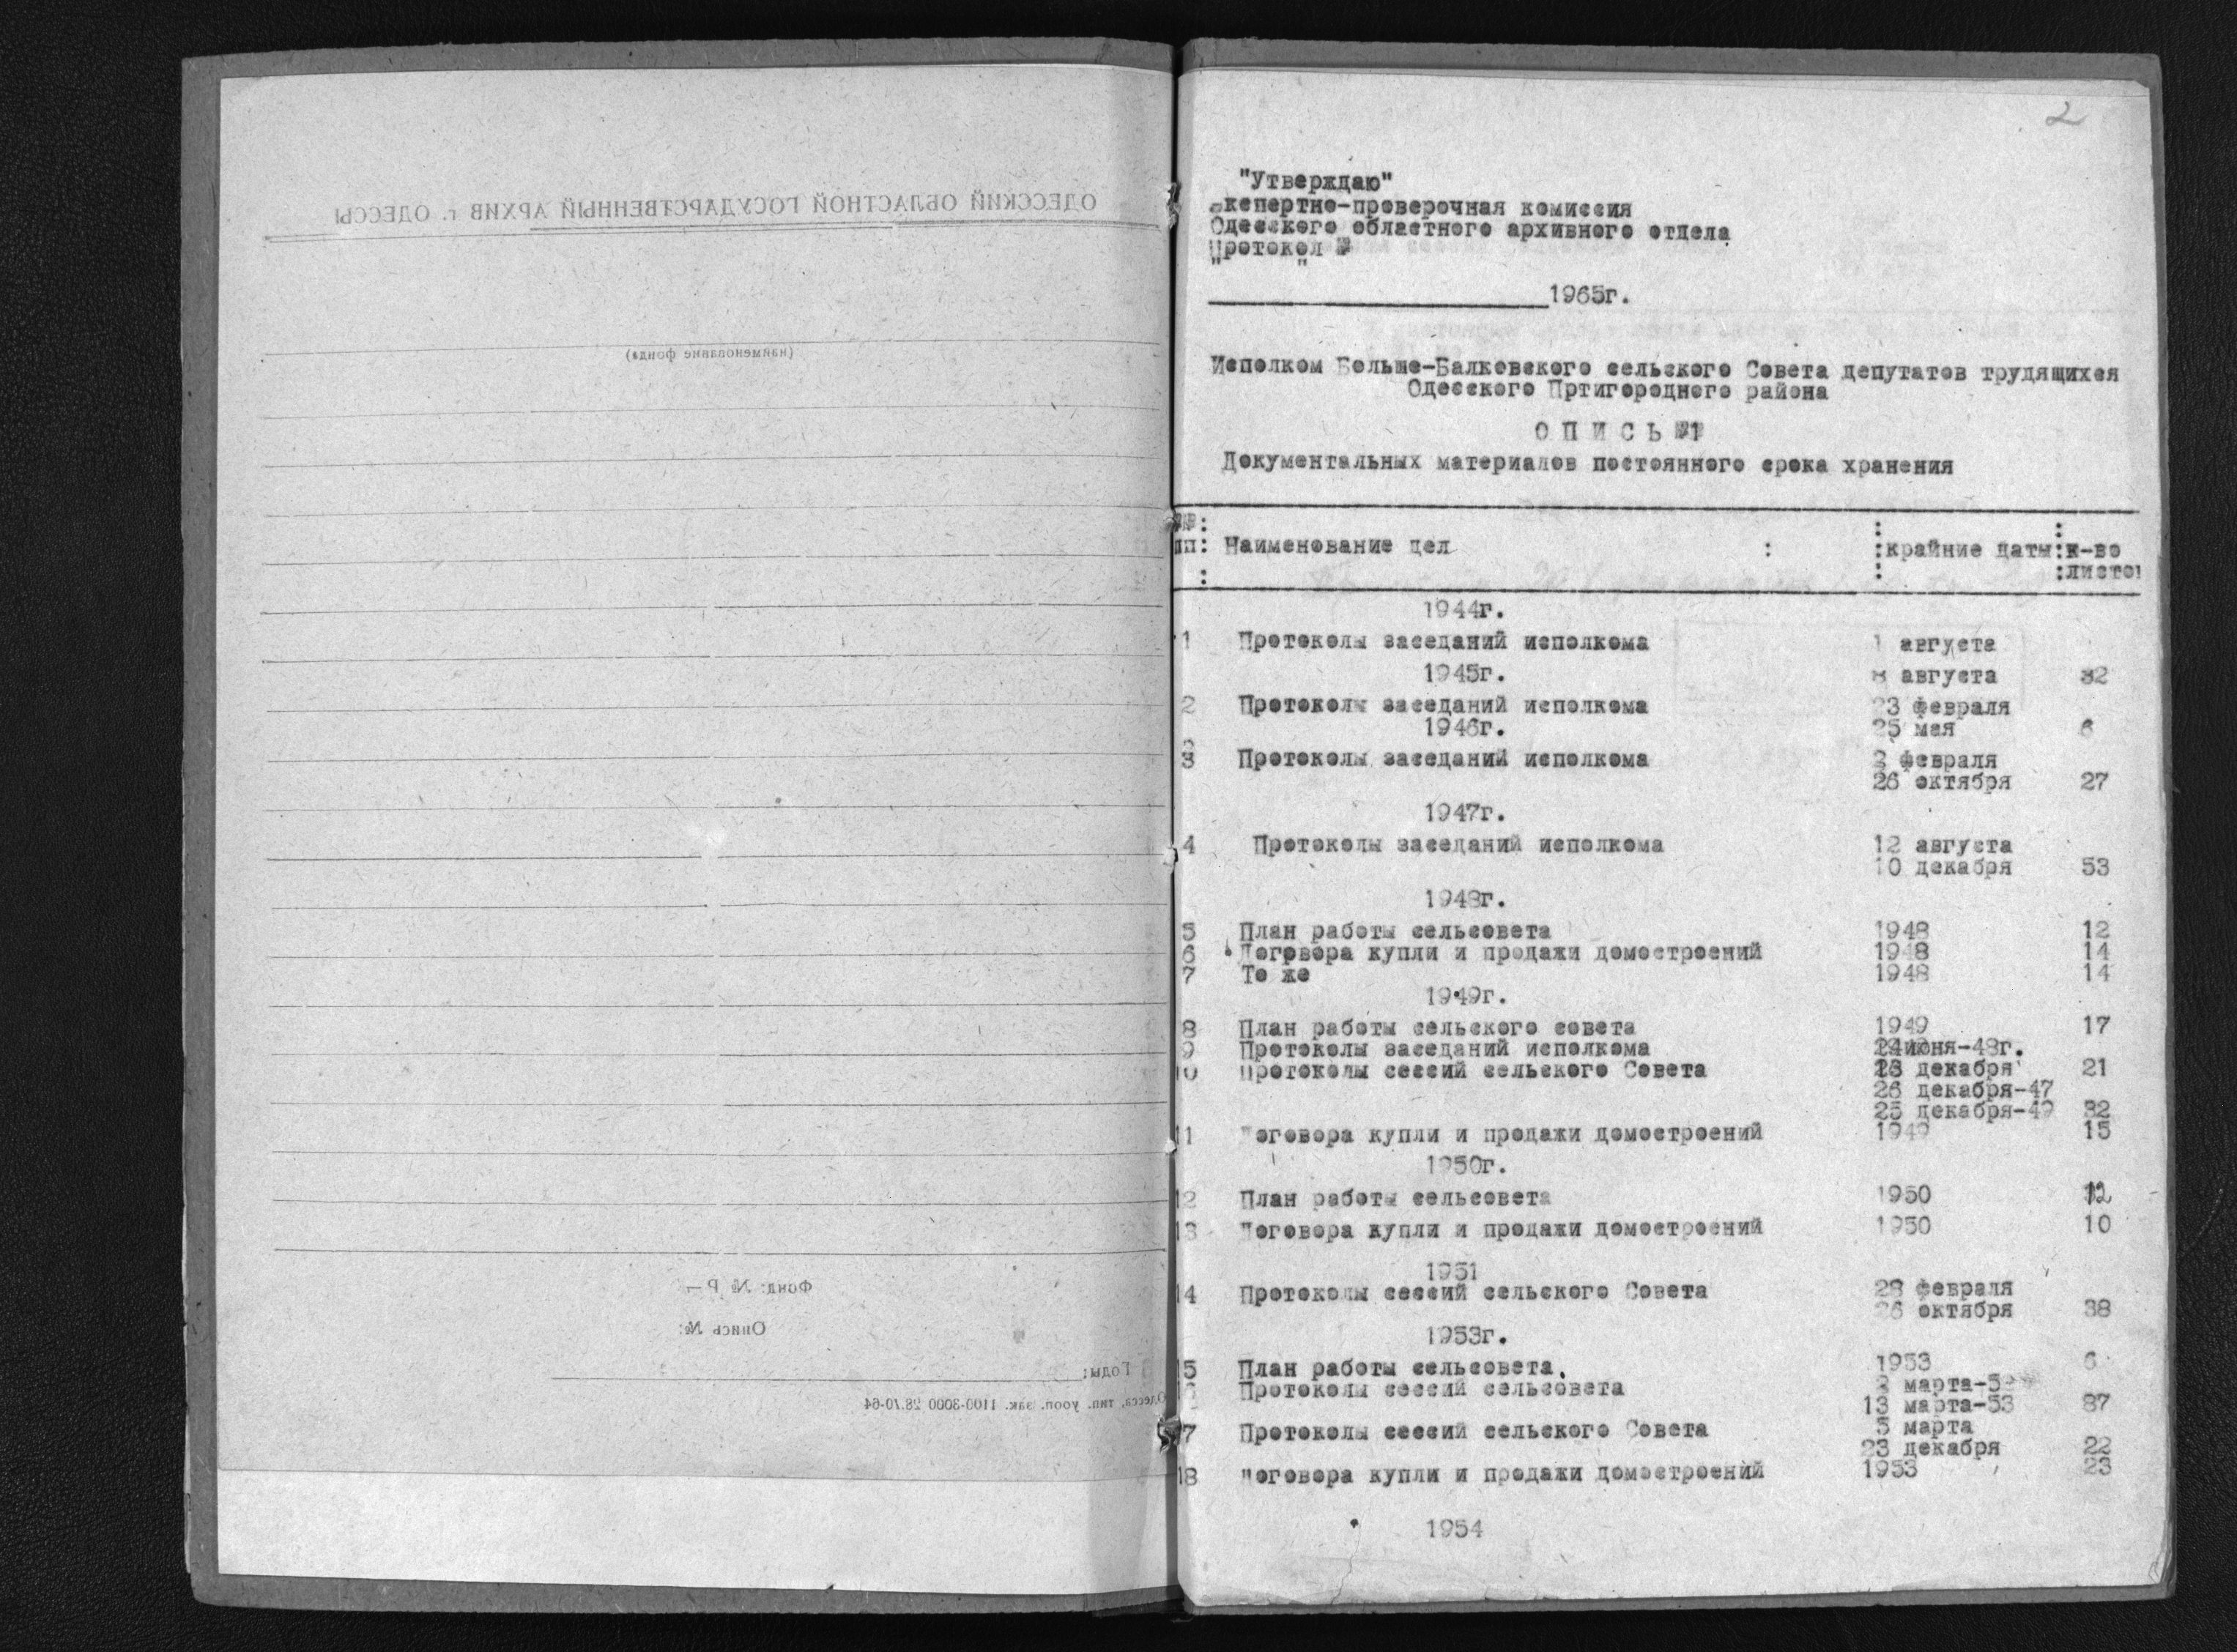 ОДЕССКИЙ ОБЛАСТНОЙ ГОСУДАРСТВЕННЫЙ АРХИВ г. ОДЕССЫ
(наименование фонда)
Фонд: № Р —
Опись №:
Годы:
Одесса, тип. уооп. зак. 1100-3000 28.10-64
2
"Утверждаю"
экпертно-проверочная комиссия
Одесского областного архивного отдела
Протокол №
" "
1965г.
Исполком Больше-Балковского сельского Совета депутатов трудящихся
Одесского Пртигороднего района
О П И С Ь №1
Документальных материалов постоянного срока хранения
№№:
пп: Наименование дел : :крайние даты:к-во
: : :листов
1944г.
1 Протоколы заседаний исполкома 1 августа
1945г. 8 августа 32
2 Протоколы заседаний исполкома 23 февраля
1946г. 25 мая 6
3 Протоколы заседаний исполкома 2 февраля
26 октября 27
1947г.
4 Протоколы заседаний исполкома 12 августа
10 декабря 53
1948г.
5 План работы сельсовета 1948 12
6 Договора купли и продажи домостроений 1948 14
7 То же 1948 14
1949г.
8 План работы сельского совета 1949 17
9 Протоколы заседаний исполкома июня-48г.
10 Протоколы сессий сельского Совета декабря 21
26 декабря-47
25 декабря-49 32
11 Договора купли и продажи домостроений 1949 15
1950г.
12 План работы сельсовета 1950 12
13 Договора купли и продажи домостроений 1950 10
1951
14 Протоколы сессий сельского Совета 28 февраля
26 октября 38
1953г.
15 План работы сельсовета. 1953 6
16 Протоколы сессий сельсовета марта-
13 марта-53 87
17 Протоколы сессий сельского Совета 5 марта
23 декабря 22
18 Договора купли и продажи домостроений 1953 23
1954